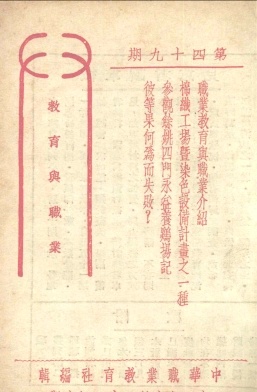 第四十九期
職業教育與職業介紹
棉織工場暨染色設備計畫之一種
參觀餘姚四門永益養鷄場記
彼等果何爲而失敗？
教育與職業
中華職業教育社編輯